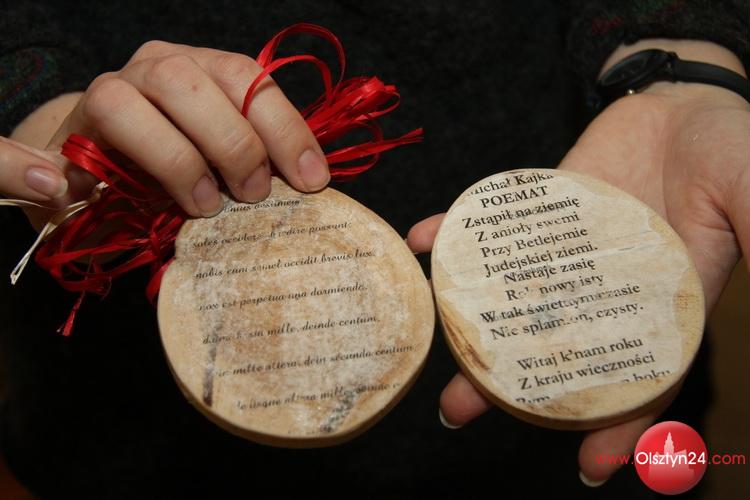 soles occidere et redire possunt:
nobis cum semel occidit brevis lux,
nox est perpetua una dormienda.
mille, deinde centum,
mille altera, dein secunda centum
usque altera mille
Michał Kajka
POEMAT
Zstąpił na ziemię
Z anioły swemi
Przy Betlejemie
Judejskiej ziemi.
Nastaje zasię
Rok nowy isty
W tak świetnym czasie
Nie splamion, czysty.
Witaj k'nam roku
Z kraju wieczności
boku
www.Olsztyn24.com